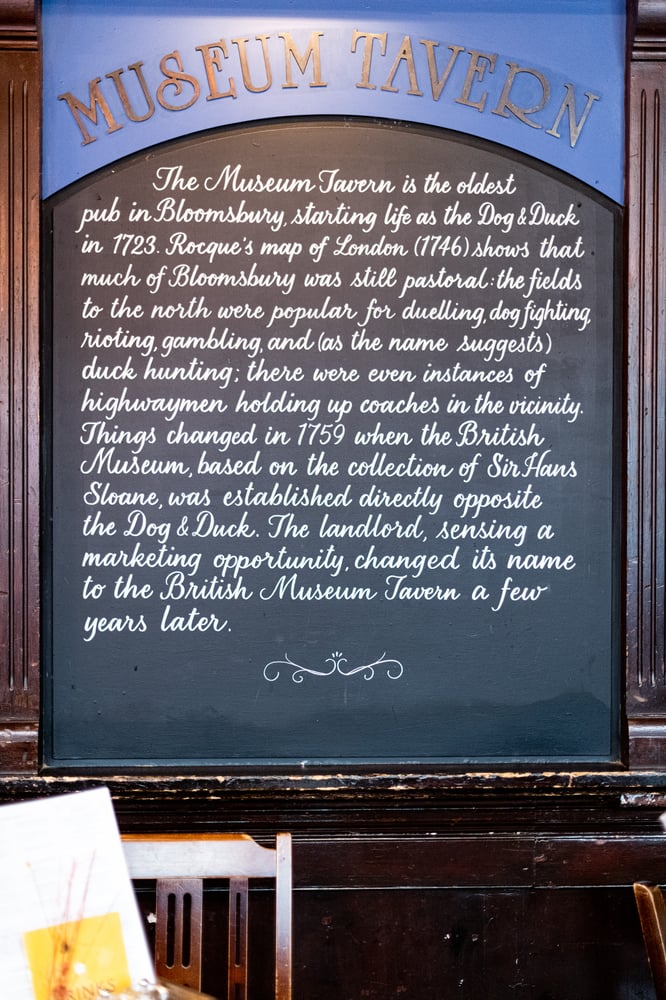 MUSEUM TAVERN
The Museum Tavern is the oldest
pub in Bloomsbury, starting life as the Dog & Duck
in 1723. Rocque's map of London (1746) shows that
much of Bloomsbury was still pastoral: the fields
to the north were popular for duelling, dog fighting,
rioting, gambling, and (as the name suggests)
duck hunting; there were even instances of
highwaymen holding up coaches in the vicinity.
Things changed in 1759 when the British
Museum, based on the collection of Sir Hans
Sloane, was established directly opposite
the Dog & Duck. The landlord, sensing a
marketing opportunity, changed its name
to the British Museum Tavern a few
years later.